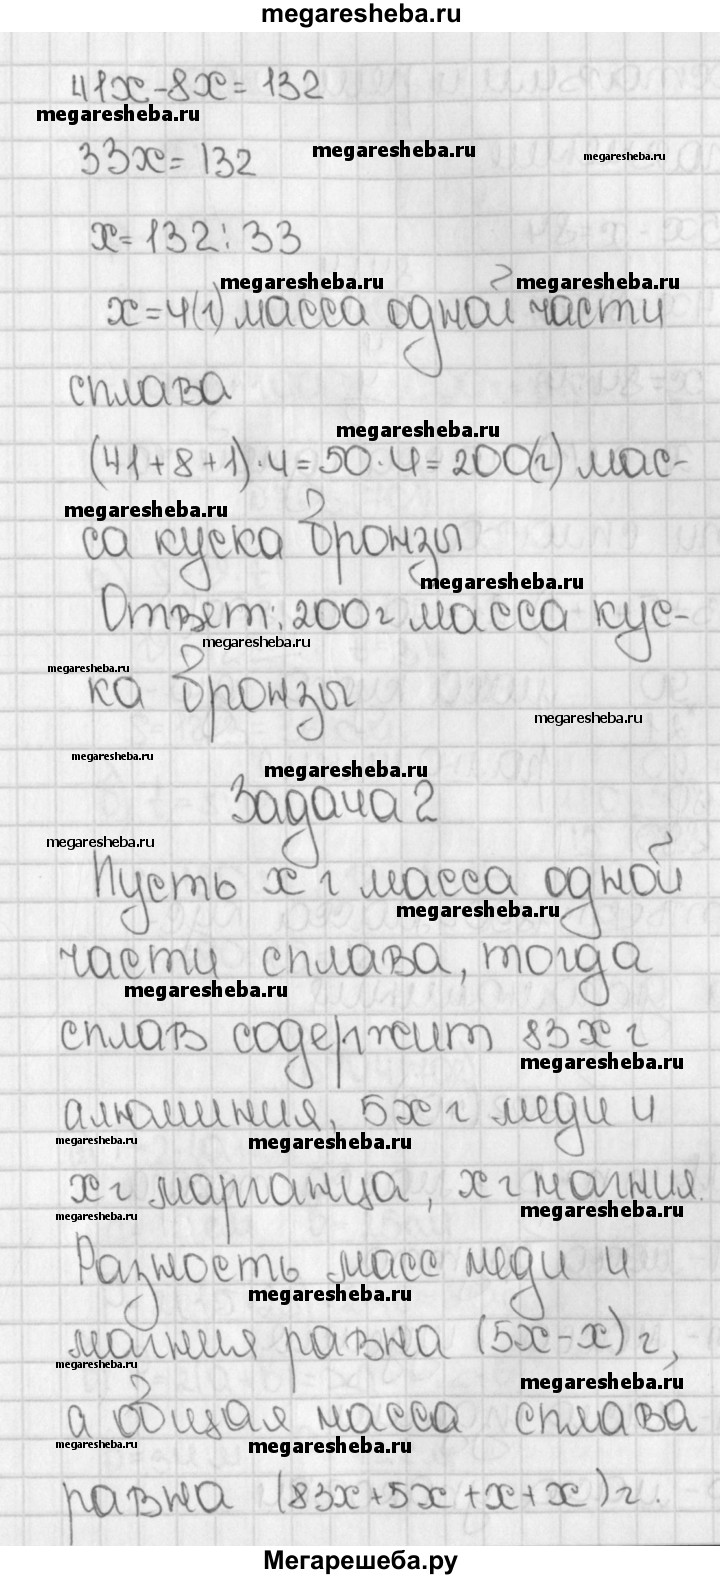 megaresheba.ru
41x-8x=132
megaresheba.ru
megaresheba.ru
megaresheba.ru
33x=132
x=132:33
megaresheba.ru
megaresheba.ru
x=4(г) масса одной части
сплава
megaresheba.ru
(41+8+1)·4=50·4=200(г) мас-
megaresheba.ru
са куска бронзы
megaresheba.ru
Ответ: 200 г масса кус-
megaresheba.ru
megaresheba.ru
ка бронзы
megaresheba.ru
megaresheba.ru
megaresheba.ru
Задача 2
megaresheba.ru
Пусть x г масса одной
megaresheba.ru
части сплава, тогда
megaresheba.ru
сплав содержит 83x г
megaresheba.ru
алюминия, 5x г меди и
megaresheba.ru
megaresheba.ru
x г марганца, x г магния.
megaresheba.ru
megaresheba.ru
Разность масс меди и
megaresheba.ru
магния равна (5x-x) г,
megaresheba.ru
megaresheba.ru
а общая масса сплава
megaresheba.ru
megaresheba.ru
равна (83x+5x+x+x) г.
Мегарешеба.ру